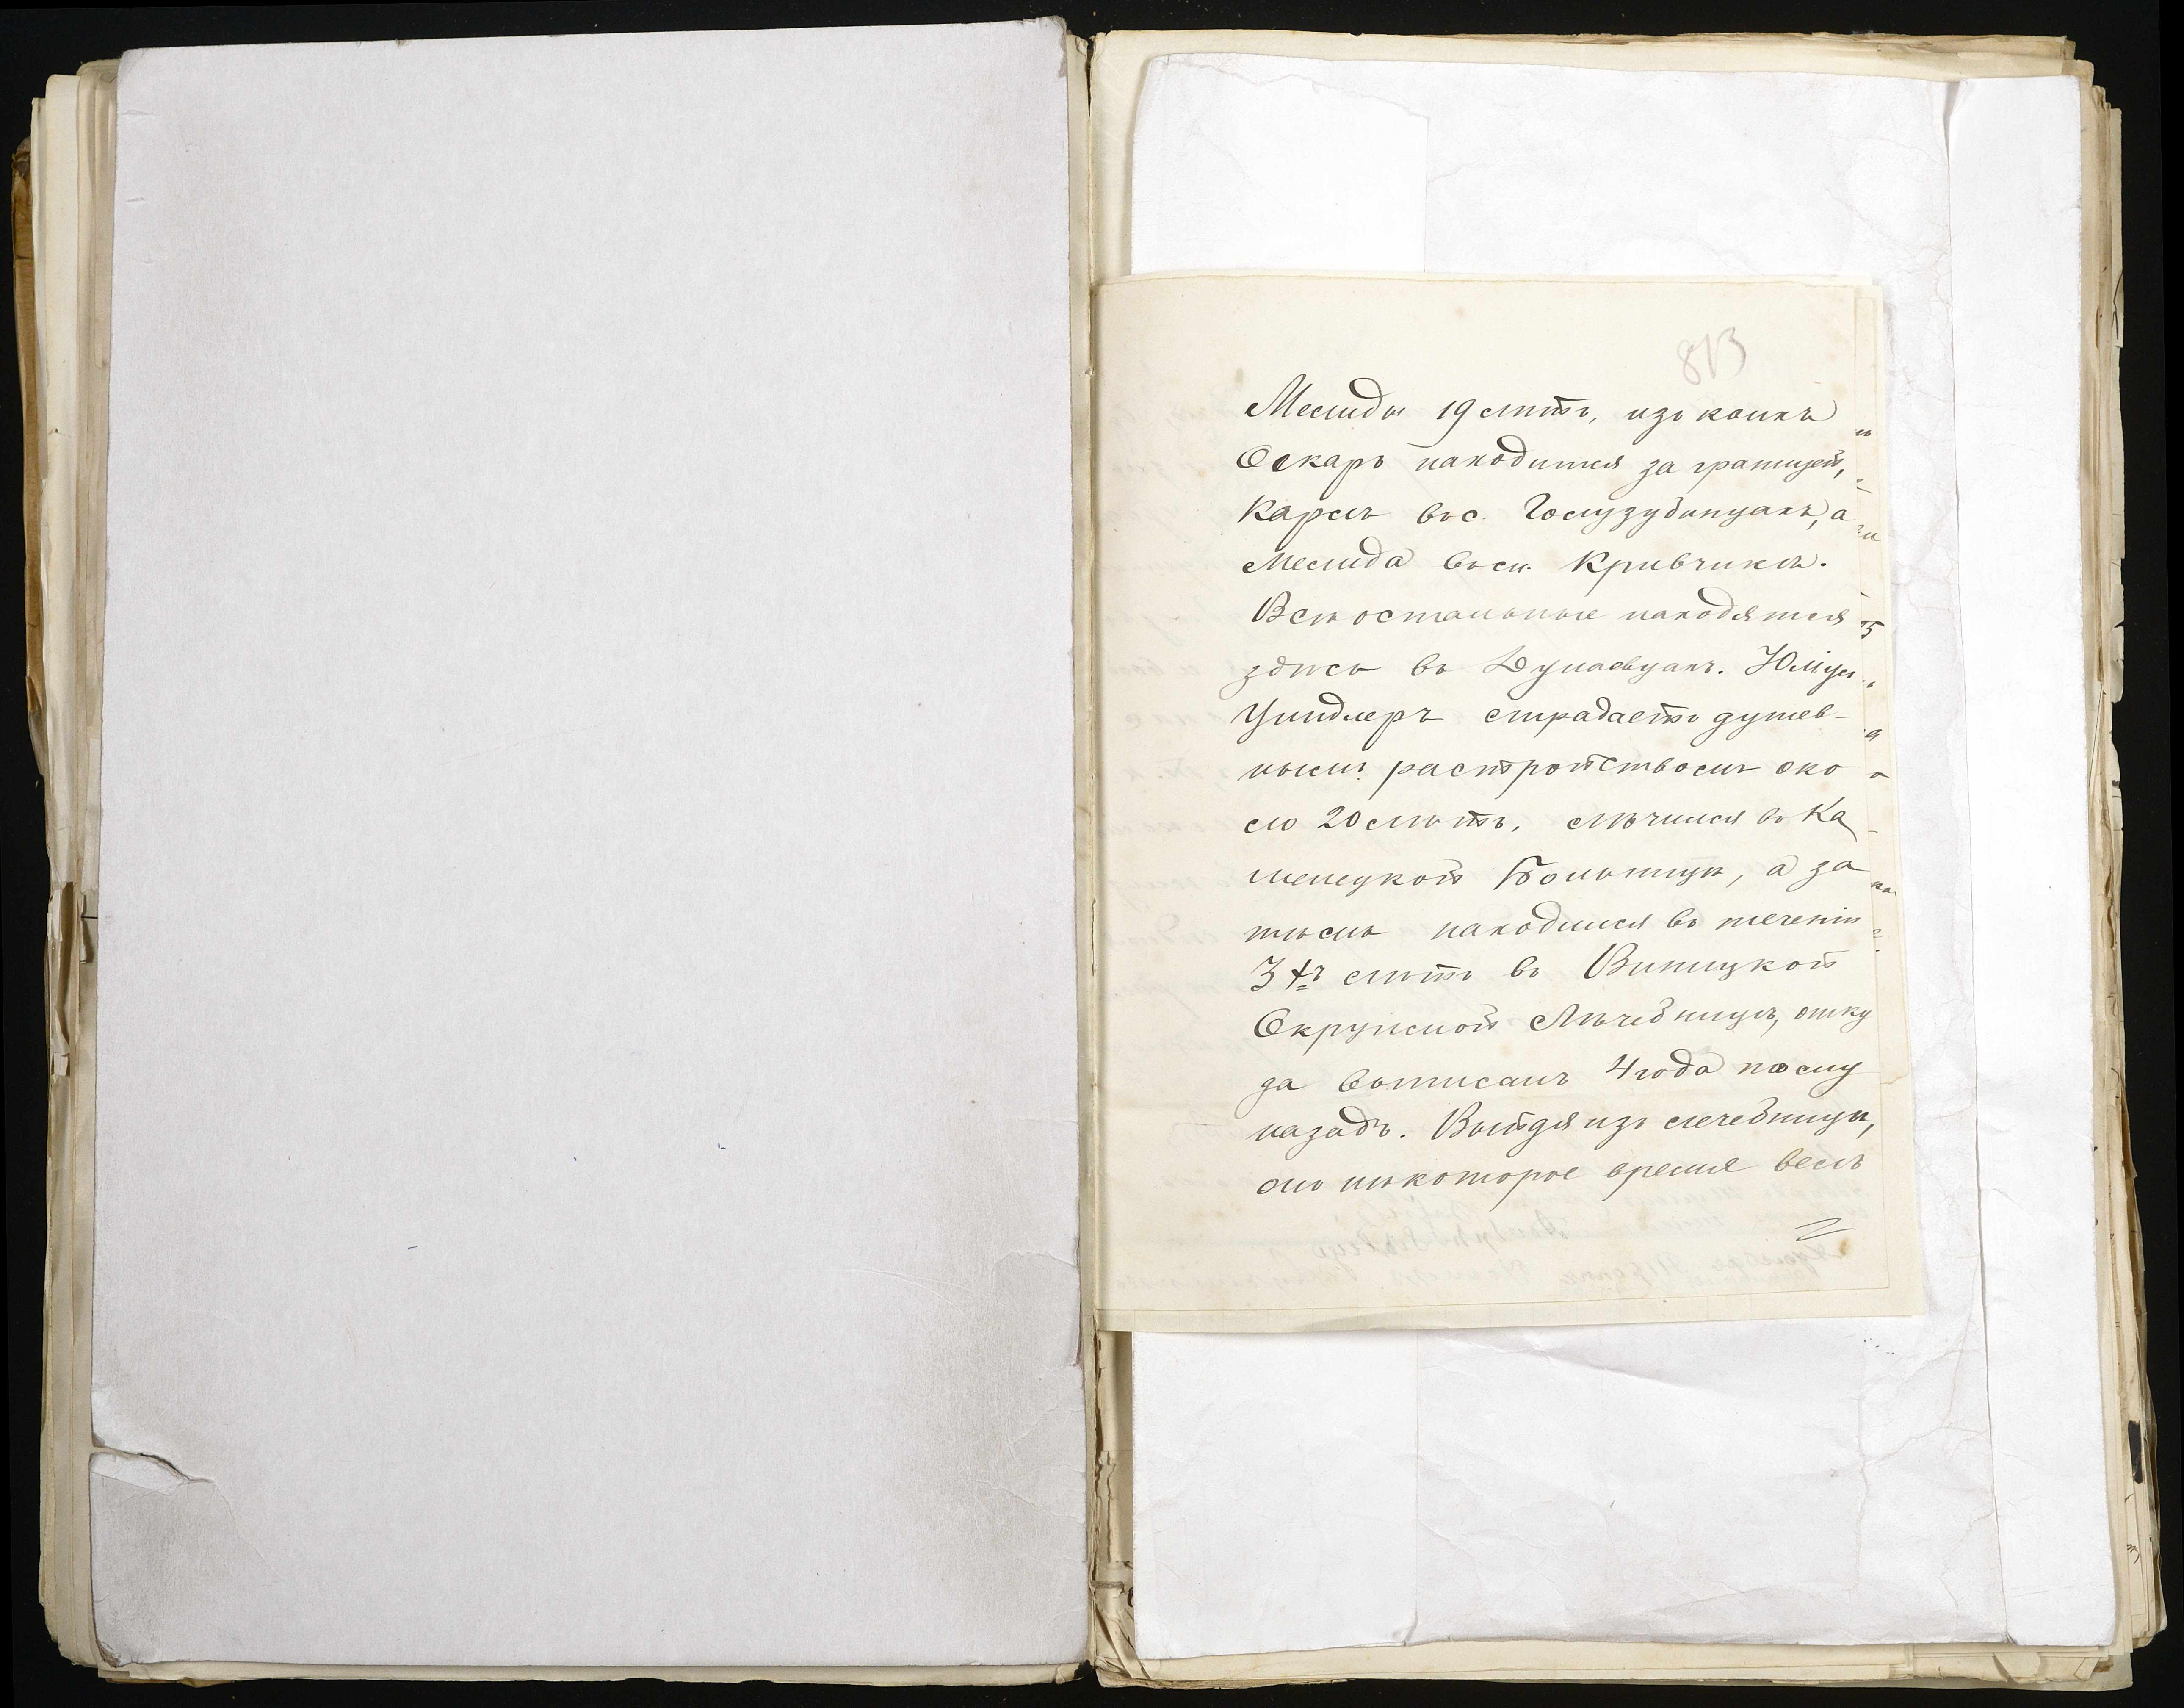 813
Мелида 19 лѣтъ, изъ коихъ
Оскаръ находится за границей,
Карлъ въ с. Голузубинцахъ, а
Мелида въ с. Кривчикъ.
Всѣ остальные находятся
здѣсь въ Дунаевцахъ. Юлiусъ
Циндлеръ страдаетъ душев-
нымъ растройствомъ око
ло 20 лѣтъ, лѣчился въ Ка
менецкой Больницѣ, а за
тѣмъ находился въ теченiи
3хъ лѣтъ въ Виницкой
Окружной Лѣчебницѣ, отку
да выписанъ 4 года тому
назадъ. Выйдя изъ лечебницы,
онъ нѣкоторое время велъ